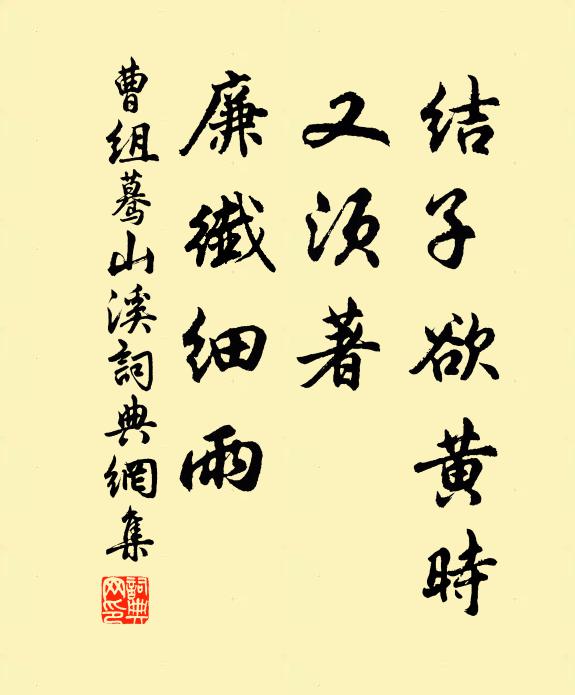 结子欲黄時
又須著
廉纖细雨
曹组驀山溪詞典網集
詞典网印